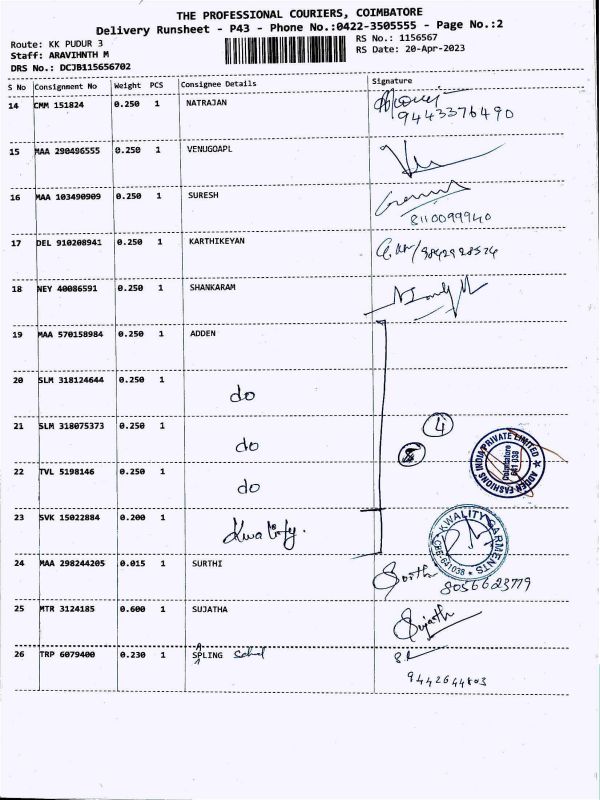 THE PROFESSIONAL COURIERS, COIMBATORE
Delivery Runsheet - P43 - Phone No.:0422-3505555 - Page No.:2
Route: KK PUDUR 3 RS No.: 1156567
Staff: ARAVIHNTH M RS Date: 20-Apr-2023
DRS No.: DCJB115656702
S No Consignment No Weight PCS Consignee Details Signature
14 CMM 151824 0.250 1 NATRAJAN
9443376490
15 MAA 290496555 0.250 1 VENUGOAPL
16 MAA 103490909 0.250 1 SURESH
8110099940
17 DEL 910208941 0.250 1 KARTHIKEYAN 9842928524
18 NEY 40086591 0.250 1 SHANKARAM
19 MAA 570158984 0.250 1 ADDEN
20 SLM 318124644 0.250 1 do
21 SLM 318075373 0.250 1 do 4
22 TVL 5198146 0.250 1 do
ADDEN FASHIONS INDIA PRIVATE LIMITED
Coimbatore
641 038
23 SVK 15022884 0.200 1 Kwality.
KWALITY GARMENTS
CBE-641038
24 MAA 298244205 0.015 1 SURTHI
8056623779
25 MTR 3124185 0.600 1 SUJATHA Sujath
26 TRP 6079400 0.230 1 SPLING
9442644803